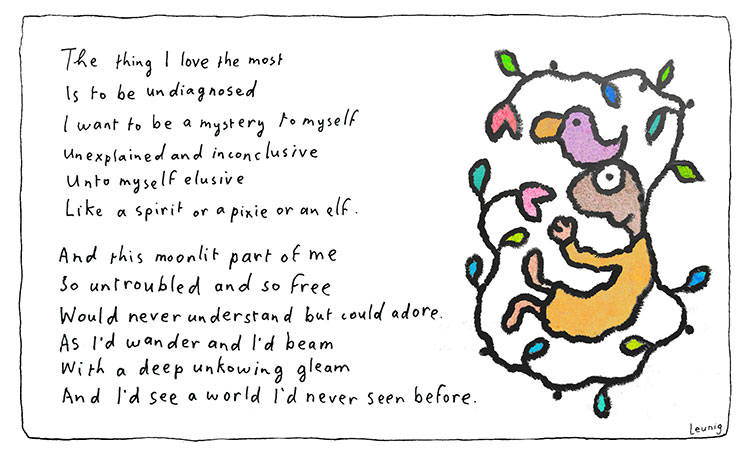 The thing I love the most
Is to be undiagnosed
I want to be a mystery to myself
Unexplained and inconclusive
Unto myself elusive
Like a spirit or a pixie or an elf.
And this moonlit part of me
So untroubled and so free
Would never understand but could adore.
As I'd wander and I'd beam
With a deep unkowing gleam
And I'd see a world I'd never seen before.
Leunig